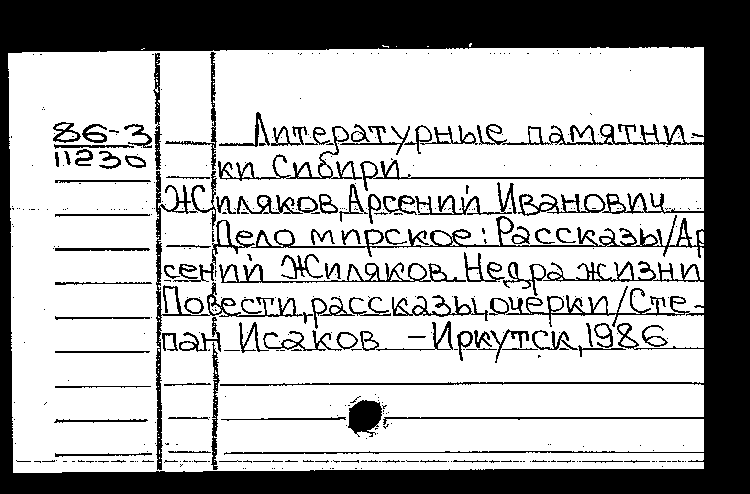 86-3
11230
Литературные памятни-
ки Сибири.
Жиляков, Арсений Иванович
Дело мирское: Рассказы/Ар
сений Жиляков. Недра жизни
Повести, рассказы, очерки/Сте-
пан Исаков - Иркутск, 1986.